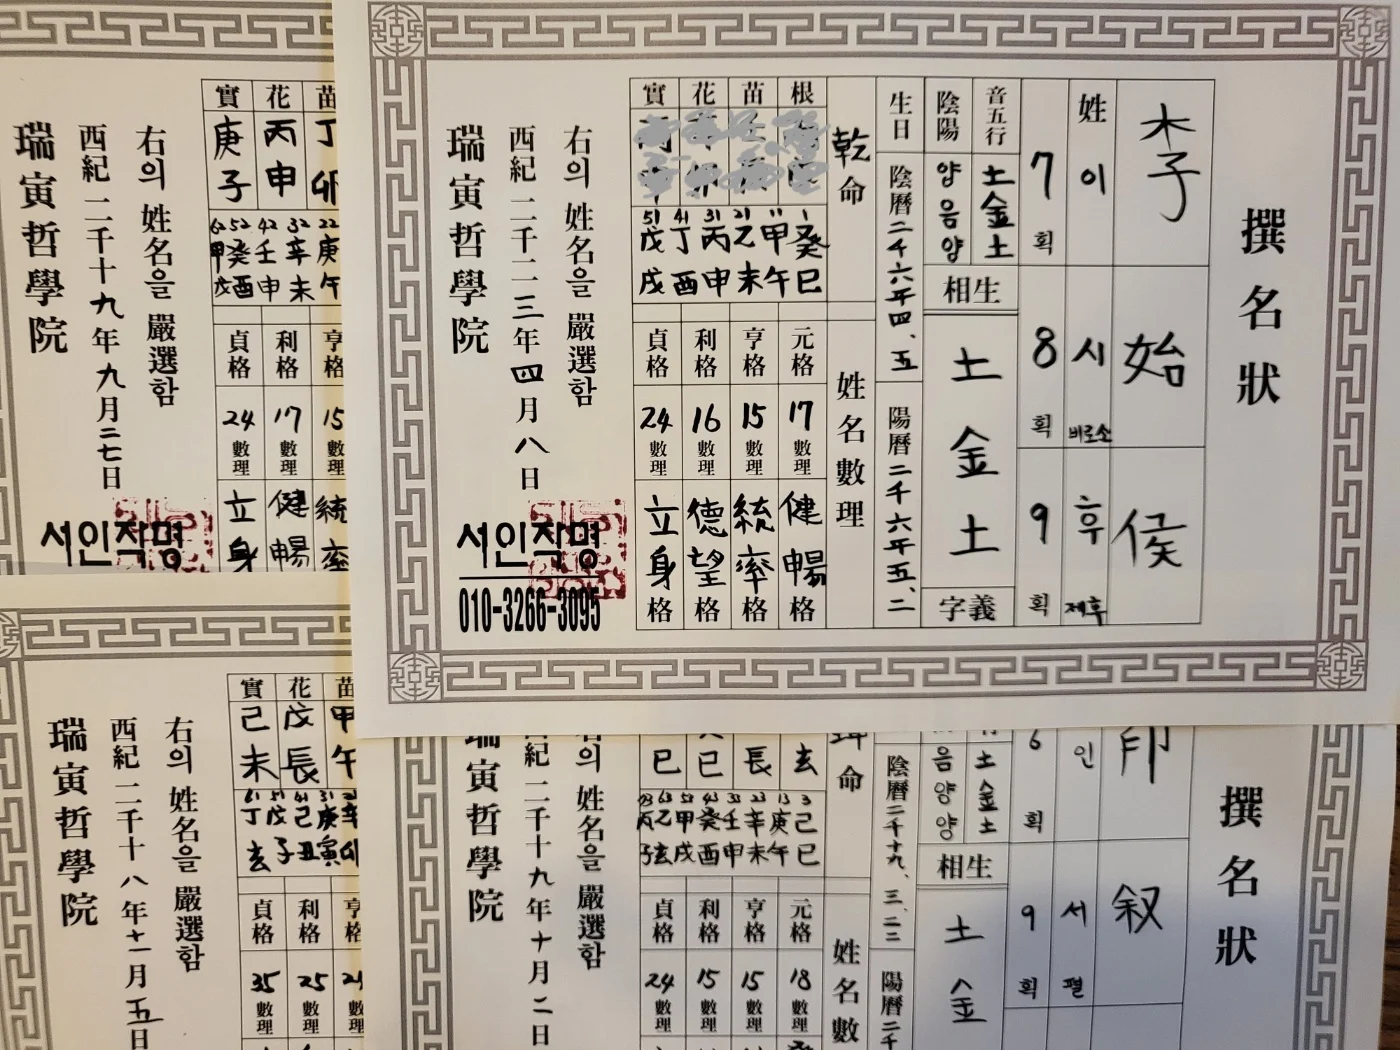 撰名狀
李 始 侯
姓 이 시 바로소 후 제후
7획 8획 9획
音五行 土金土
陰陽 양음양
相生
土金土
字義
生日 陰曆二千六年四、五 陽曆二千六年五、二
乾命
姓名數理
根 苗 花 實
1 11 21 31 41 51
癸 甲 乙 丙 丁 戊
巳 午 未 申 酉 戌
元格 亨格 利格 貞格
17數理 15數理 16數理 24數理
健暢格 統率格 德望格 立身格
右의 姓名을 嚴選함
西紀 二千二三年四月八日
瑞寅哲學院
서인작명
010-3266-3095
苗 花 實
丁 丙 庚
卯 申 子
22 32 42 52 62
庚 辛 壬 癸 甲
午 未 申 酉 戌
亨格 利格 貞格
15數理 17數理 24數理
統率 健暢 立身
右의 姓名을 嚴選함
西紀 二千十九年九月二七日
瑞寅哲學院
서인작명
苗 花 實
甲 戊 己
午 辰 未
庚 己 戊 丁
寅 丑 子 亥
亨格 利格 貞格
25數理 35數理
右의 姓名을 嚴選함
西紀 二千十八年十一月五日
瑞寅哲學院
撰名狀
印 叙
인 서 펼
6획 9획
土金土
음양양
相生
土金
陰曆二千十九、三、二三 陽曆二千
坤命
姓名數
亥 辰 巳 巳
3 13 23 33 43 53 63
己 庚 辛 壬 癸 甲 乙
巳 午 未 申 酉 戌 亥
元格 亨格 利格 貞格
18數理 15數理 15數理 24數理
右의 姓名을 嚴選함
西紀 二千十九年十月二日
瑞寅哲學院